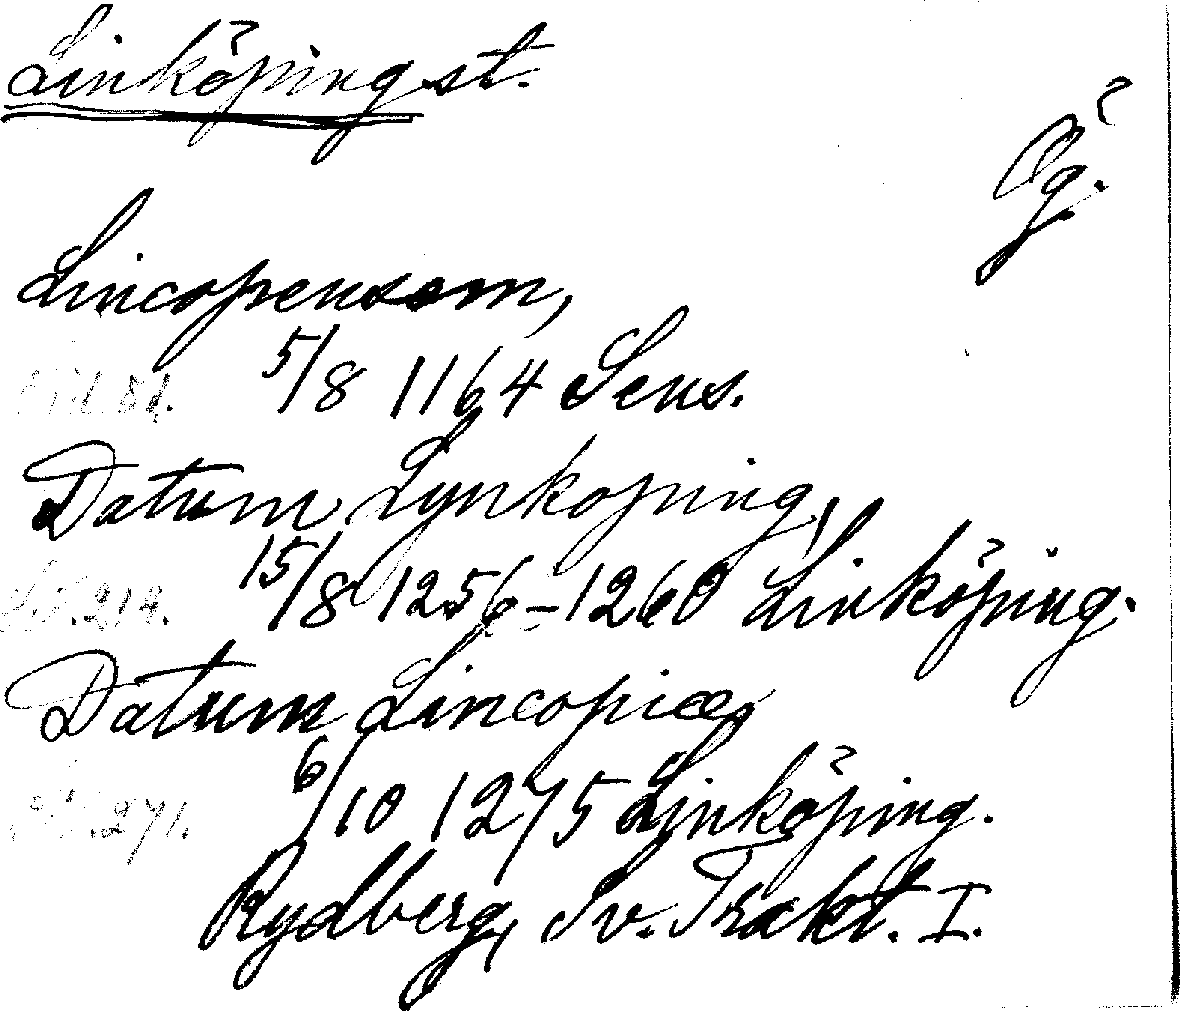 Linköping st.
Ög.
Lincopensem,
5/8 1164 Sens.
Datum Lynkoping,
15/8 1256–1260 Linköping.
214.
Datum Lincopiæ,
6/10 1275 Linköping.
271.
Rydberg, Sv. Trakt. I.